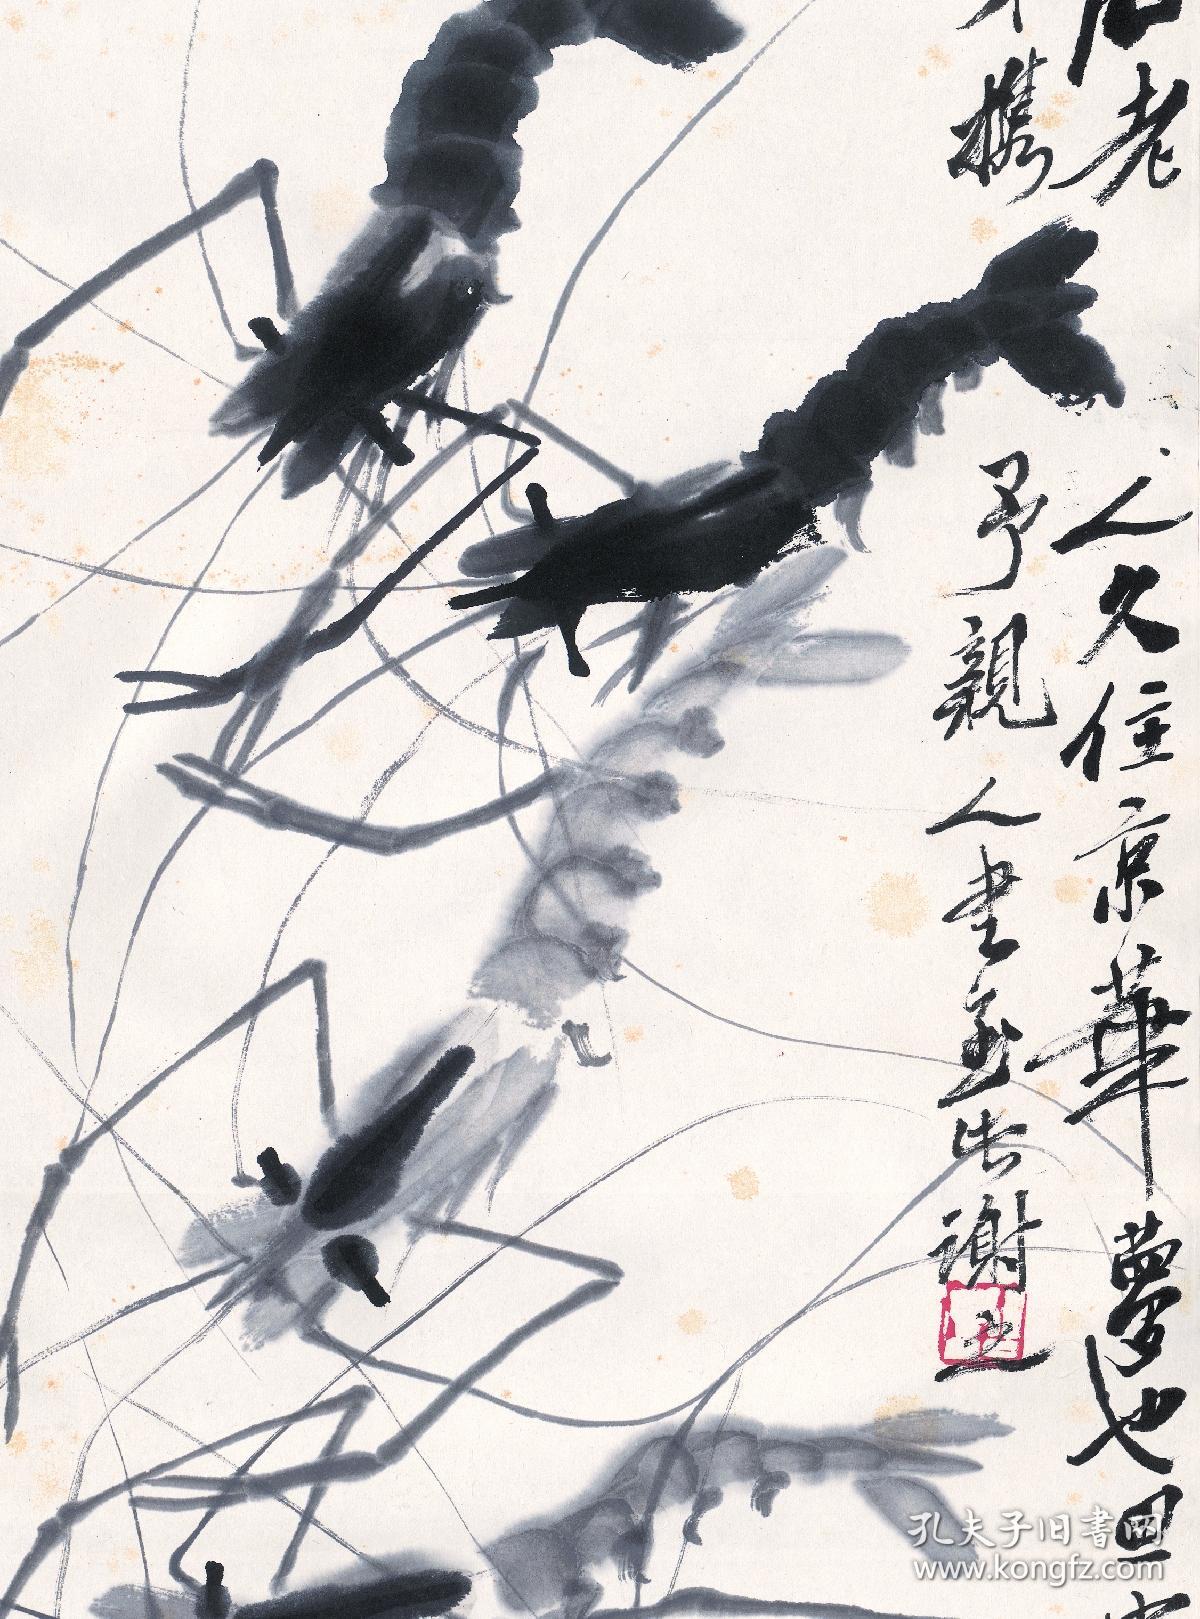 老人久住京華夢也
携予親人書並告謝之
孔夫子旧書网
www.kongfz.com